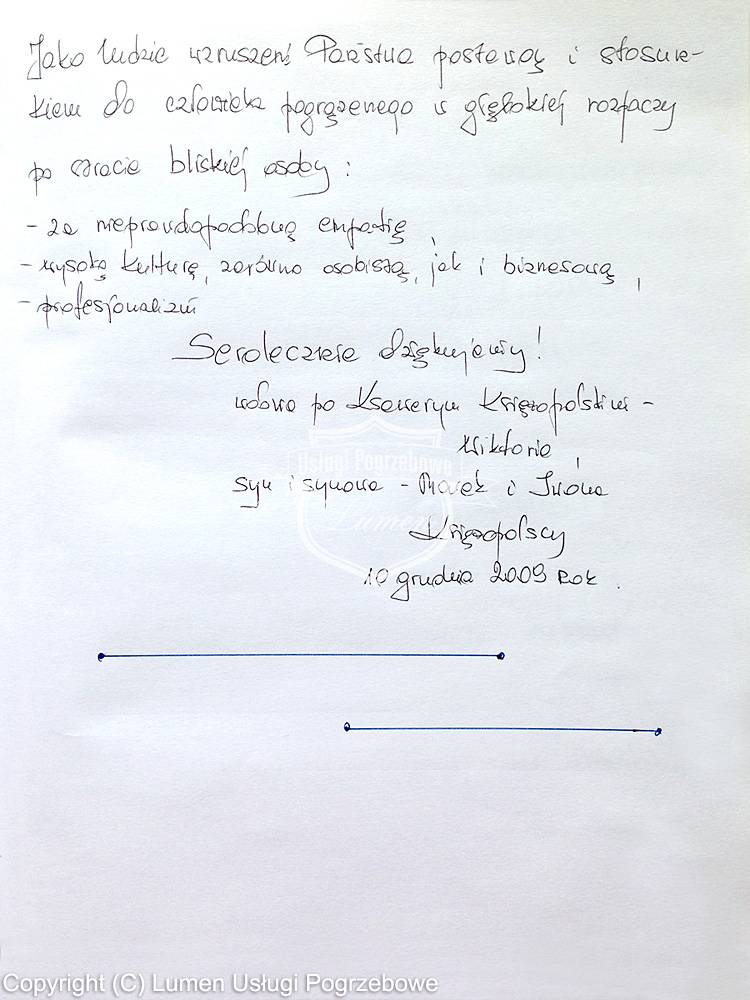 Jako ludzie wzruszeni Państwa postawą i stosun-
kiem do człowieka pogrążonego w głębokiej rozpaczy
po stracie bliskiej osoby:
- za nieprawdopodobną empatię,
- wysoką kulturę, zarówno osobistą, jak i biznesową,
- profesjonalizm
Serdecznie dziękujemy!
wdowa po Ksawerym Księżopolskim -
Wiktoria,
syn i synowa - Marek i Iwona
Księżopolscy
10 grudnia 2009 Rok.
Usługi Pogrzebowe
Lumen
Copyright (C) Lumen Usługi Pogrzebowe